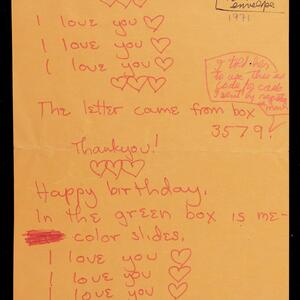 envelope
1971
I love you
I love you
I love you
I told her
to use this as
The letter came from box
3579!
Thankyou!
Happy birthday.
In the green box is me-
color slides.
I love you
I love you
I love you